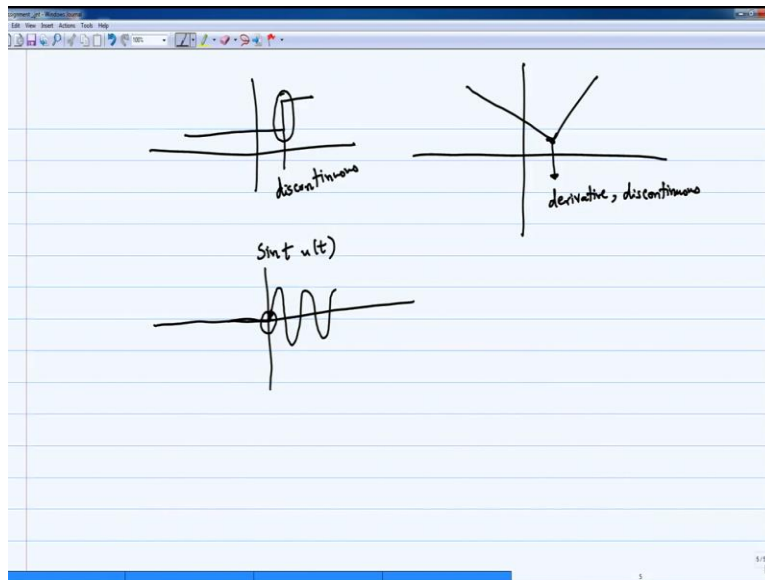 Edit View Insert Actions Tools Help
discontinuous
derivative, discontinuous
Sint u(t)
5